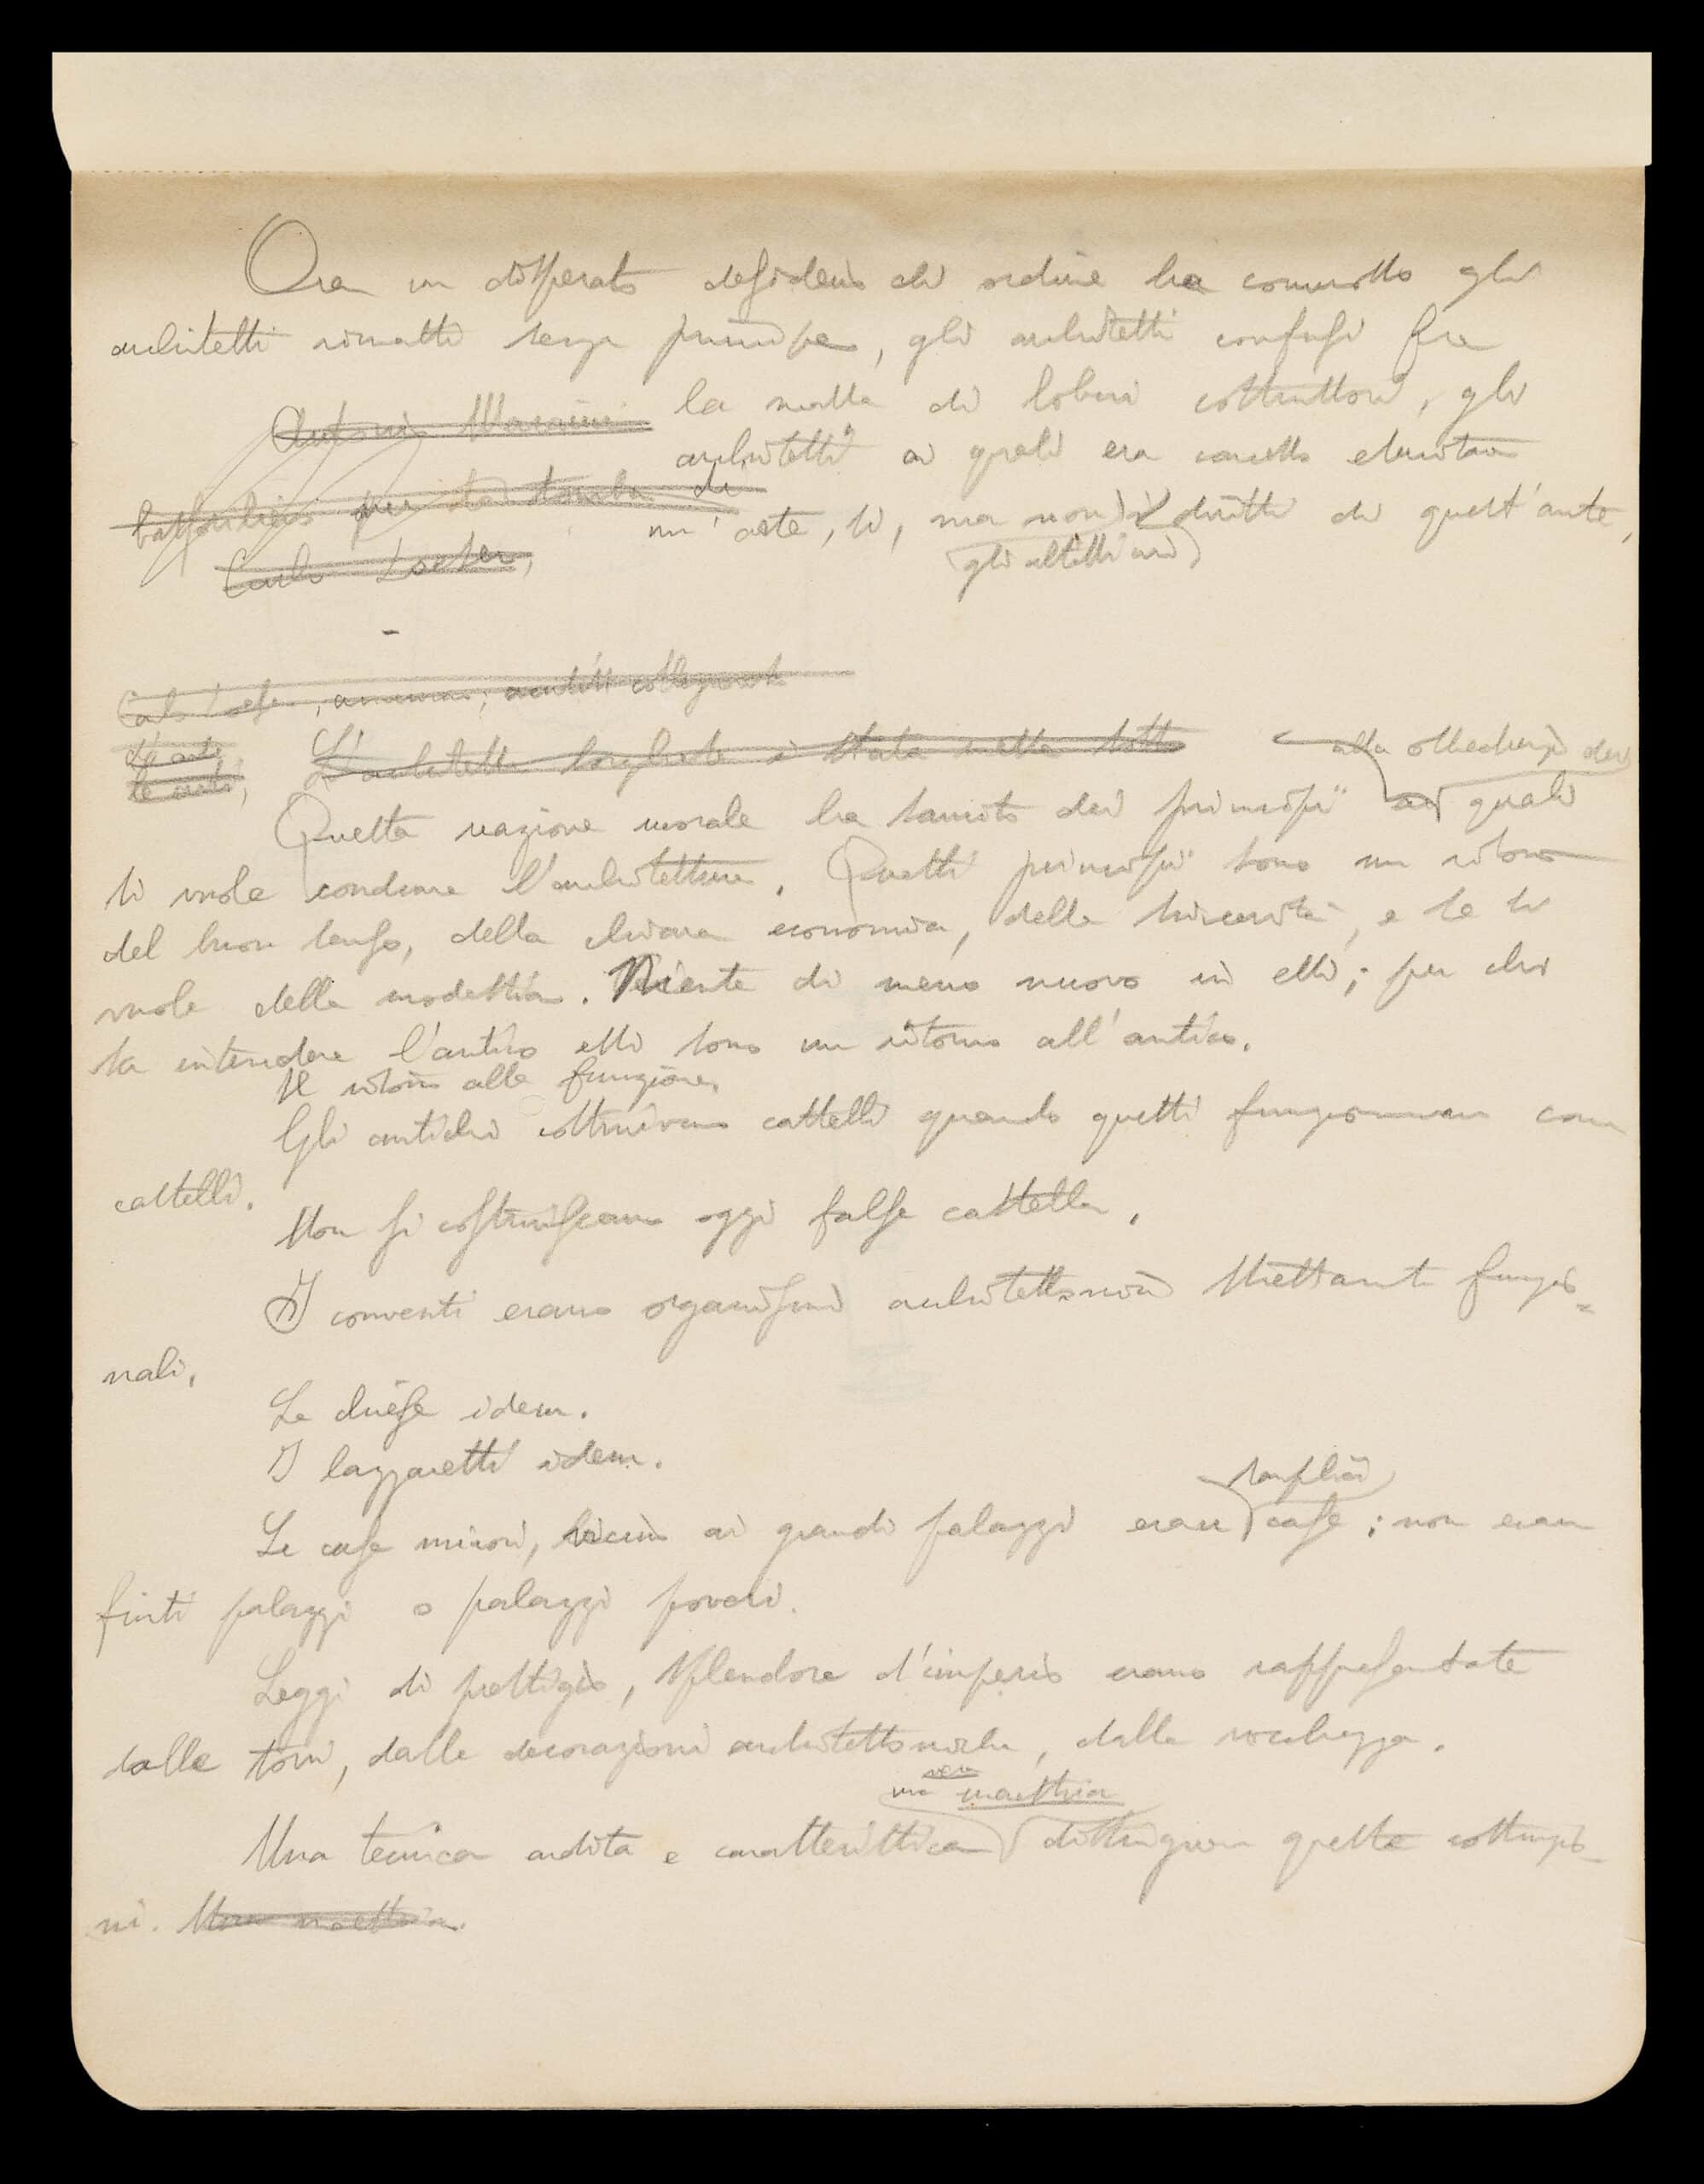 Ora un disperato desiderio di ordine ha commosso gli
architetti rimasti senza principe, gli architetti confusi fra
la molla di costruttori, gli
architetti ai quali era concesso esercitare
un'arte, sì, ma non i diritti di quest'arte,
gli altissimi
Antonio Maraini
bassorilievo per la tomba di
Carlo Loeser,
L'architetto borghese è stata nella
alla obbedienza dei
Questa reazione morale ha sancito dei principii ai quali
si vuole condurre l'architettura. Questi principii sono un ritorno
del buon senso, della chiara economia, della sincerità, e se si
vuole della modestia. Niente di meno nuovo in essi; per chi
sa intendere l'antico essi sono un ritorno all'antico.
Il ritorno alla funzione.
Gli antichi costruivano castelli quando questi funzionavano come
castelli.
Non si costruiscano oggi false castella.
I conventi erano organismi architettonici strettamente funzio=
nali.
Le chiese idem.
I lazzaretti idem.
semplici
Le case minori, vicino ai grandi palazzi erano case; non erano
finti palazzi o palazzi poveri.
Leggi di prestigio, splendore d'imperio erano rappresentate
dalle torri, dalle decorazioni architettoniche, dalla ricchezza.
una vera maestria
Una tecnica ardita e caratteristica distinguere queste costruzio-
ni. Una maestria.